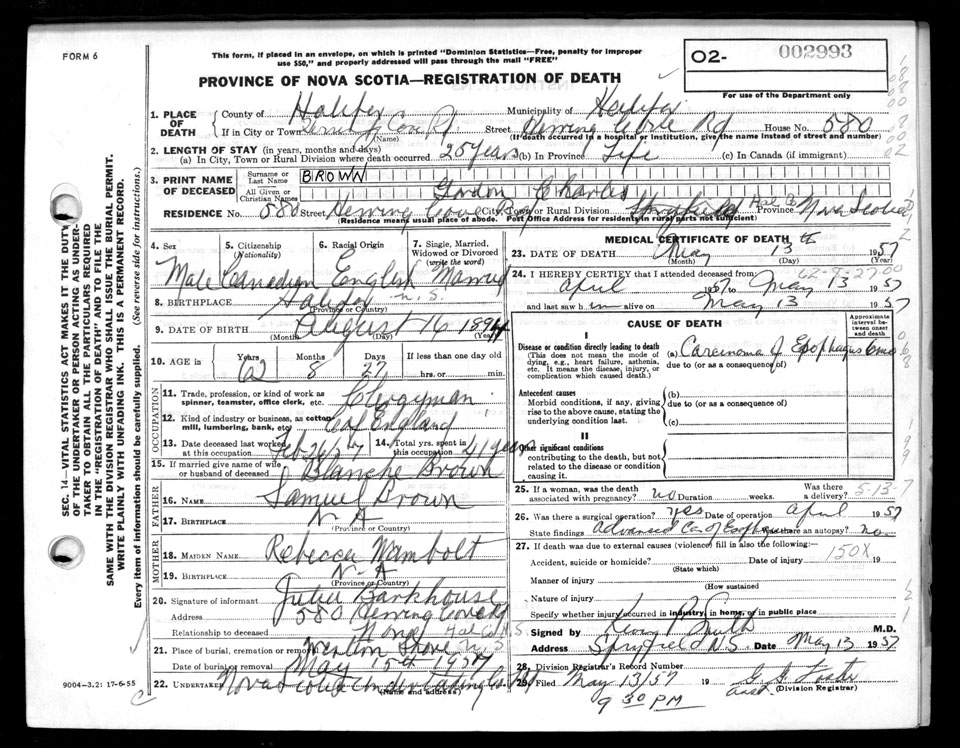 FORM 6
This form, if placed in an envelope, on which is printed "Dominion Statistics—Free, penalty for improper
use $50," and properly addressed will pass through the mail "FREE"
PROVINCE OF NOVA SCOTIA—REGISTRATION OF DEATH
O2- 002993
For use of the Department only
1. PLACE OF DEATH
County of Halifax Municipality of Halifax
If in City or Town Street Herring Cove Rd House No. 580
(Name) (If death occurred in a hospital or institution, give the name instead of street and number)
2. LENGTH OF STAY (in years, months and days)
(a) In City, Town or Rural Division where death occurred 25 Years (b) In Province Life (c) In Canada (if immigrant)
3. PRINT NAME OF DECEASED
Surname or Last Name BROWN
All Given or Christian Names Gordon Charles
RESIDENCE No. 580 Street Herring Cove Rd City, Town or Rural Division Spryfield Province Nova Scotia
Residence means usual place of abode. Post Office Address for residents in rural parts not sufficient)
4. Sex
Male
5. Citizenship
(Nationality)
Canadian
6. Racial Origin
English
7. Single, Married, Widowed or Divorced
(write the word)
Married
8. BIRTHPLACE Halifax N.S.
(Province or Country)
9. DATE OF BIRTH August 16 1894
(Month) (Day) (Year)
10. AGE in Years Months Days If less than one day
62 8 27 hrs. or min.
OCCUPATION
11. Trade, profession, or kind of work as
spinner, teamster, office clerk, etc. Clergyman
12. Kind of industry or business, as cotton
mill, lumbering, bank, etc. C of England
13. Date deceased last worked
at this occupation Feb 26/57
14. Total yrs. spent in
this occupation 41 years
15. If married give name of wife
or husband of deceased Blanche Brown
FATHER
16. NAME Samuel Brown
17. BIRTHPLACE N A
(Province or Country)
MOTHER
18. MAIDEN NAME Rebecca Wambolt
19. BIRTHPLACE N A
(Province or Country)
20. Signature of informant Julia Barkhouse
Address 580 Herring Cove Rd
Relationship to deceased None Hal Co N.S
21. Place of burial, cremation or removal Western Shore N.S
Date of burial or removal May 15th 1957
22. UNDERTAKER Nova Scotia Undertaking Co.
(Name and address)
MEDICAL CERTIFICATE OF DEATH
23. DATE OF DEATH May 13th 1957
(Month) (Day) (Year)
24. I HEREBY CERTIFY that I attended deceased from:
62-8-27-00
April 1957 to May 13 1957
and last saw him alive on May 13 1957
CAUSE OF DEATH
Approximate interval between onset and death
I
Disease or condition directly leading to death
(This does not mean the mode of dying, e.g., heart failure, asthenia, etc. It means the disease, injury, or complication which caused death.)
(a) Carcinoma of Esophagus 6 mo
due to (or as a consequence of)
Antecedent causes
Morbid conditions, if any, giving rise to the above cause, stating the underlying condition last.
(b)
due to (or as a consequence of)
(c)
II
Other significant conditions
contributing to the death, but not related to the disease or condition causing it.
25. If a woman, was the death
associated with pregnancy? no Duration weeks. Was there a delivery?
5-13-7
26. Was there a surgical operation? yes Date of operation April 1957
State findings Advanced Ca of Esophagus Was there an autopsy? no
27. If death was due to external causes (violence) fill in also the following:
150X
Accident, suicide or homicide? Date of injury 19
(State which)
Manner of injury
(How sustained
Nature of injury
Specify whether injury occurred in industry, in home, or in public place
Signed by Smith M.D.
Address Spryfield N S Date May 13 1957
28. Division Registrar's Record Number
29. Filed May 13/57 19 Foster
(Division Registrar)
9 30 PM
9004—3.2: 17-6-55
SEC. 14—VITAL STATISTICS ACT MAKES IT THE DUTY
OF THE UNDERTAKER OR PERSON ACTING AS UNDER-
TAKER TO OBTAIN ALL THE PARTICULARS REQUIRED
IN THE "REGISTRATION OF DEATH" AND TO FILE THE
SAME WITH THE DIVISION REGISTRAR WHO SHALL ISSUE THE BURIAL PERMIT.
WRITE PLAINLY WITH UNFADING INK. THIS IS A PERMANENT RECORD.
Every item of information should be carefully supplied. (See reverse side for instructions.)